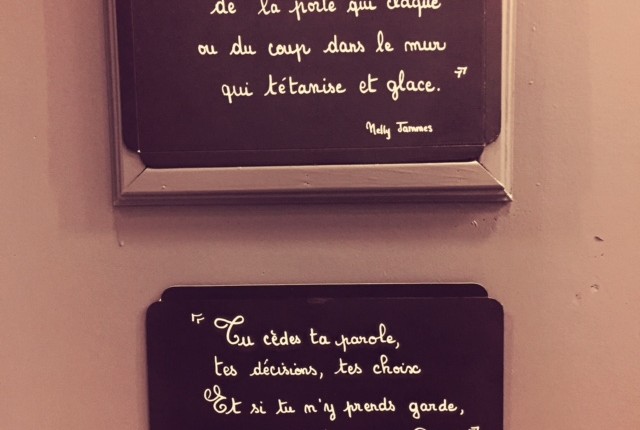 de la porte qui claque
ou du coup dans le mur
qui tétanise et glace. "
Nelly Jammes
" Tu cèdes ta parole,
tes décisions, tes choix
Et si tu n'y prends garde,